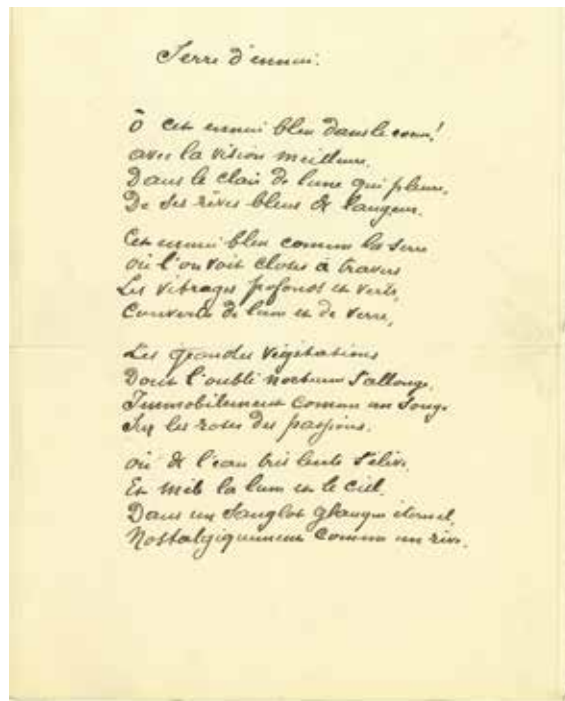 Serre d'ennui.
Ô cet ennui bleu dans le cœur!
avec la vision meilleure,
Dans le clair de lune qui pleure,
De ses rêves bleus de langueur.
Cet ennui bleu comme la serre
où l'on voit closes à travers
Les vitrages profonds et verts,
Couverts de lune et de verre,
Les grandes végétations
Dont l'oubli nocturne s'allonge,
Immobilement comme un songe
Sur les roses des passions.
où de l'eau très lente s'élève,
Et mêle la lune et le ciel
Dans un sanglot glauque éternel,
Nostalgiquement comme un rêve.